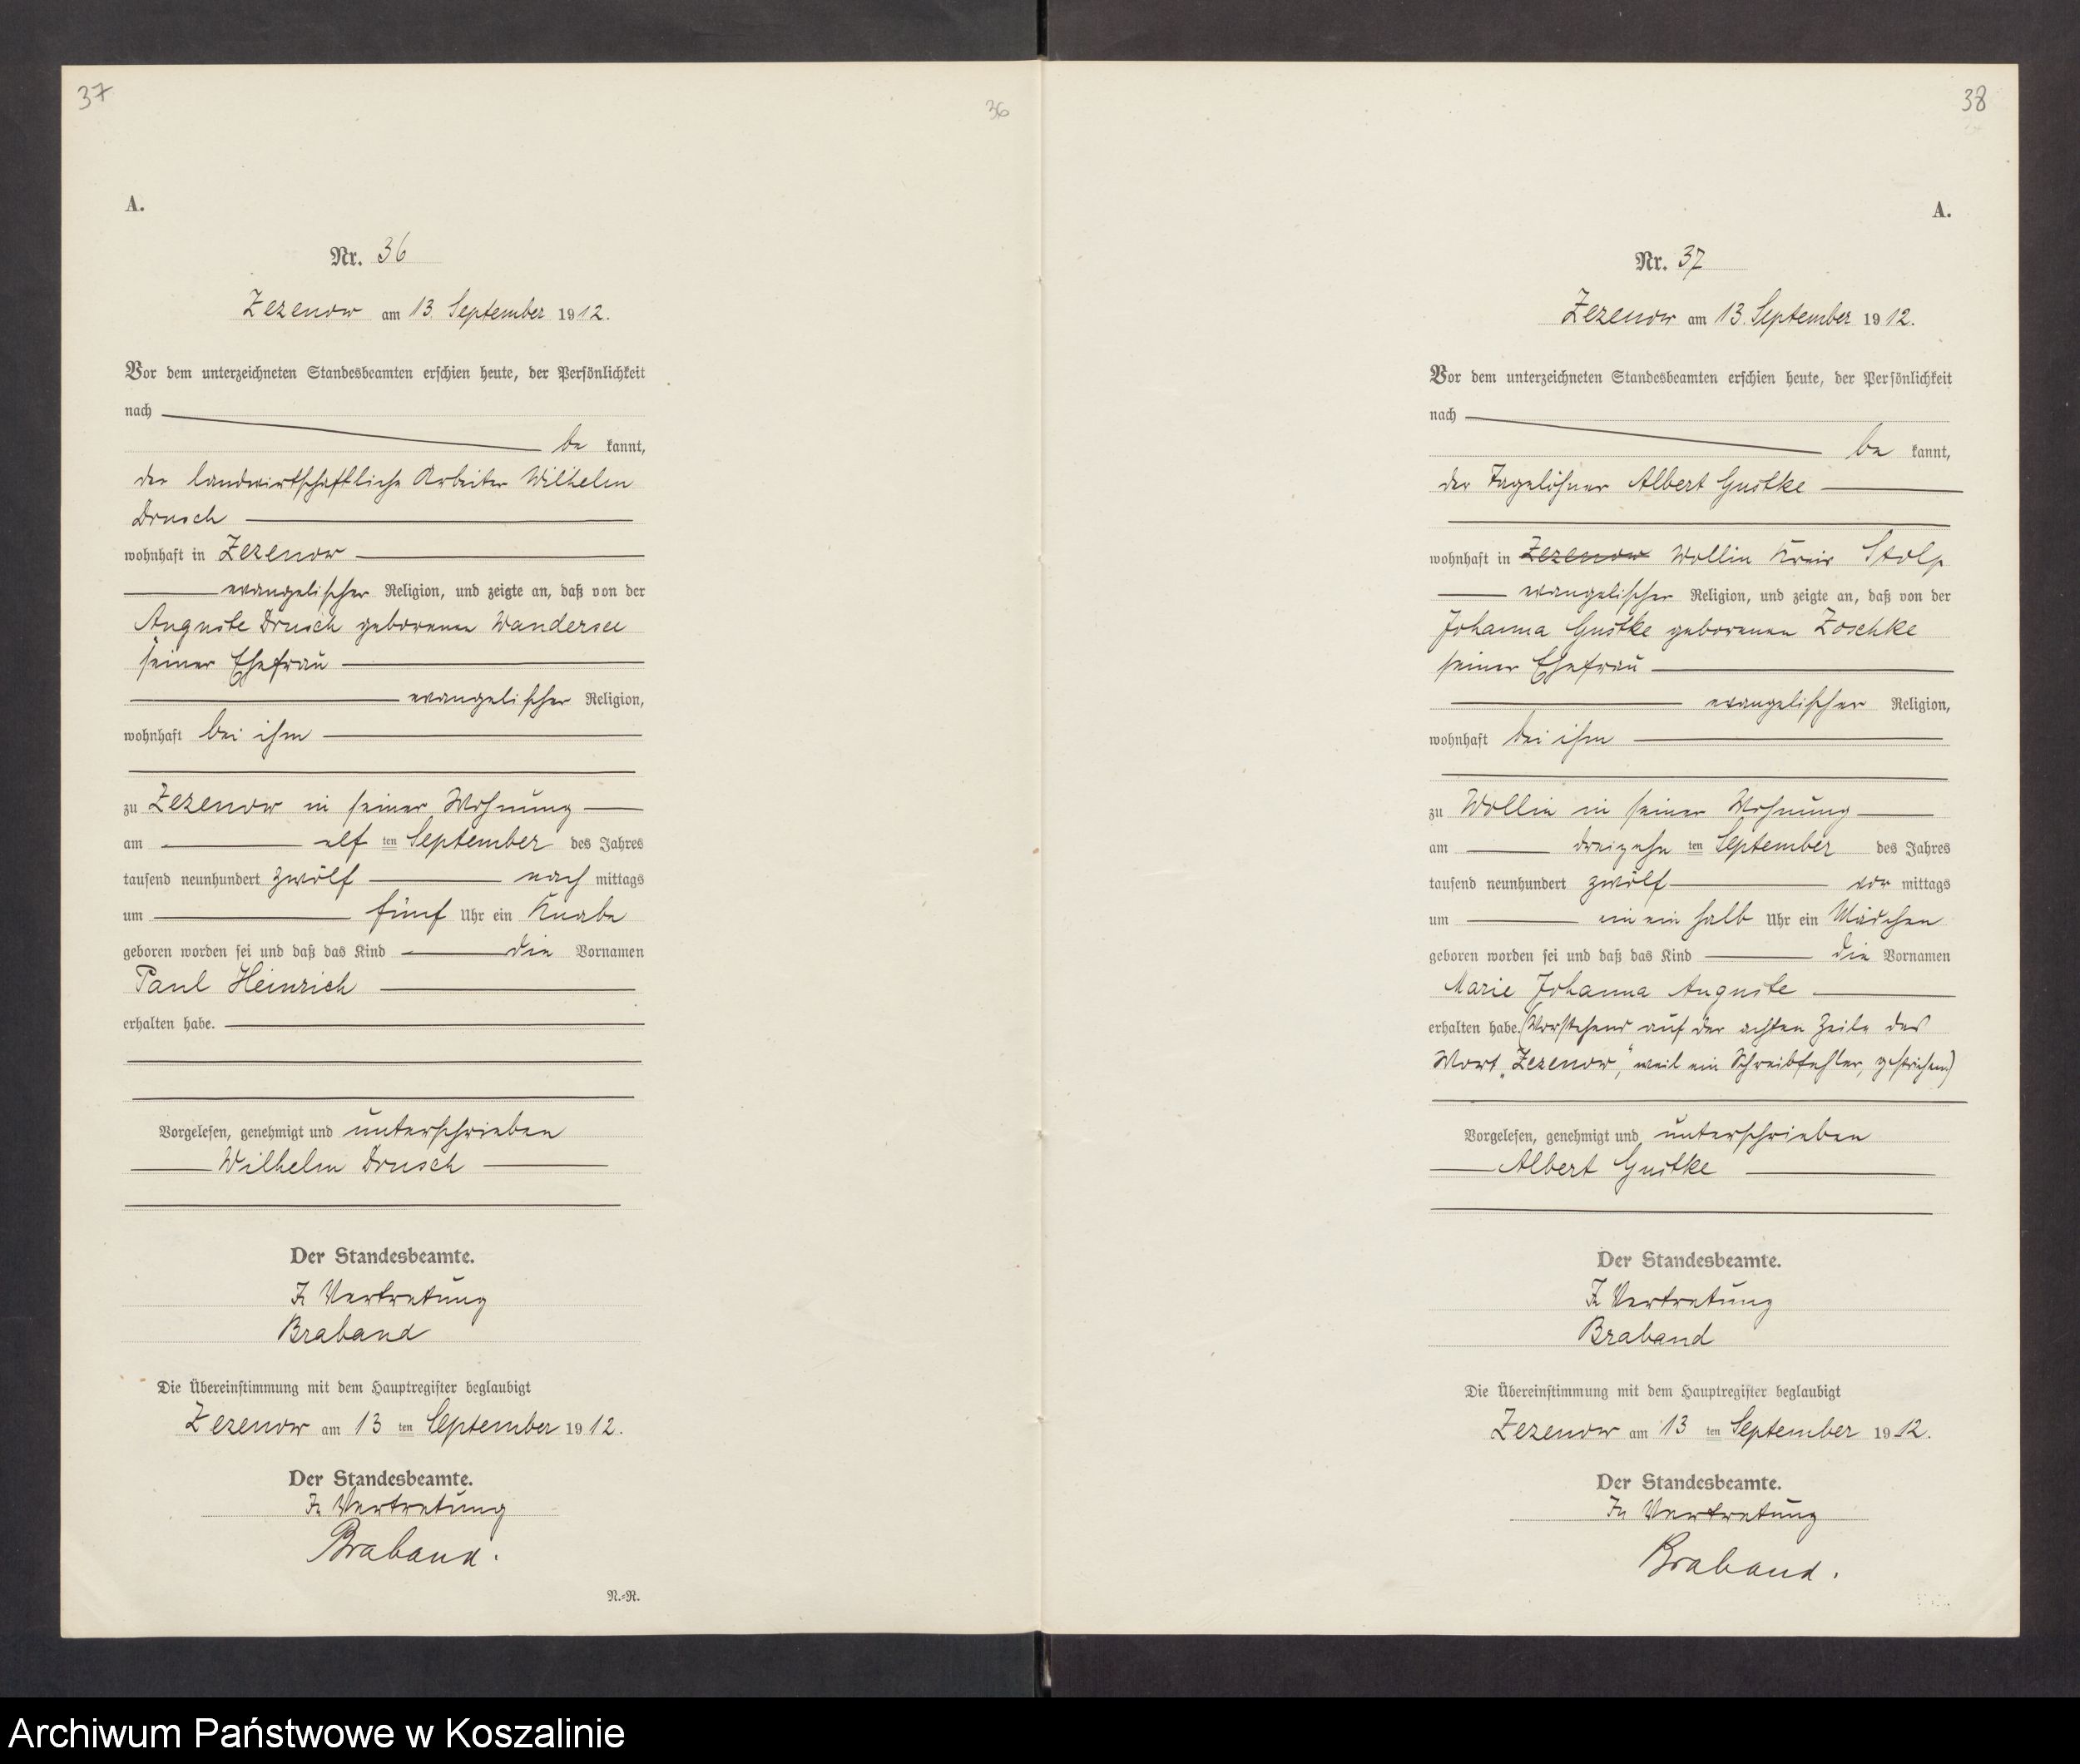 37
36
A.
Nr. 36
Zezenow am 13. September 1912.
Vor dem unterzeichneten Standesbeamten erschien heute, der Persönlichkeit
nach
be kannt,
der landwirtschaftliche Arbeiter Wilhelm
Drusch
wohnhaft in Zezenow
evangelischer Religion, und zeigte an, daß von der
Auguste Drusch geborenen Wandersee
seiner Ehefrau
evangelischer Religion,
wohnhaft bei ihm
zu Zezenow in seiner Wohnung
am elf ten September des Jahres
tausend neunhundert zwölf nach mittags
um fünf Uhr ein Knabe
geboren worden sei und daß das Kind die Vornamen
Paul Heinrich
erhalten habe.
Vorgelesen, genehmigt und unterschrieben
Wilhelm Drusch
Der Standesbeamte.
In Vertretung
Braband
Die Übereinstimmung mit dem Hauptregister beglaubigt
Zezenow am 13 ten September 1912.
Der Standesbeamte.
In Vertretung
Braband.
N.-R.
38
A.
Nr. 37
Zezenow am 13. September 1912.
Vor dem unterzeichneten Standesbeamten erschien heute, der Persönlichkeit
nach
be kannt,
der Tagelöhner Albert Gustke
wohnhaft in Zezenow Wollin Kreis Stolp
evangelischer Religion, und zeigte an, daß von der
Johanna Gustke geborenen Zoschke
seiner Ehefrau
evangelischer Religion,
wohnhaft bei ihm
zu Wollin in seiner Wohnung
am dreizehn ten September des Jahres
tausend neunhundert zwölf vor mittags
um ein ein halb Uhr ein Mädchen
geboren worden sei und daß das Kind die Vornamen
Marie Johanna Auguste
erhalten habe. (Vorstehend auf der achten Zeile das
Wort „Zezenow“, weil ein Schreibfehler, gestrichen)
Vorgelesen, genehmigt und unterschrieben
Albert Gustke
Der Standesbeamte.
In Vertretung
Braband
Die Übereinstimmung mit dem Hauptregister beglaubigt
Zezenow am 13 ten September 1912.
Der Standesbeamte.
In Vertretung
Braband.
Archiwum Państwowe w Koszalinie